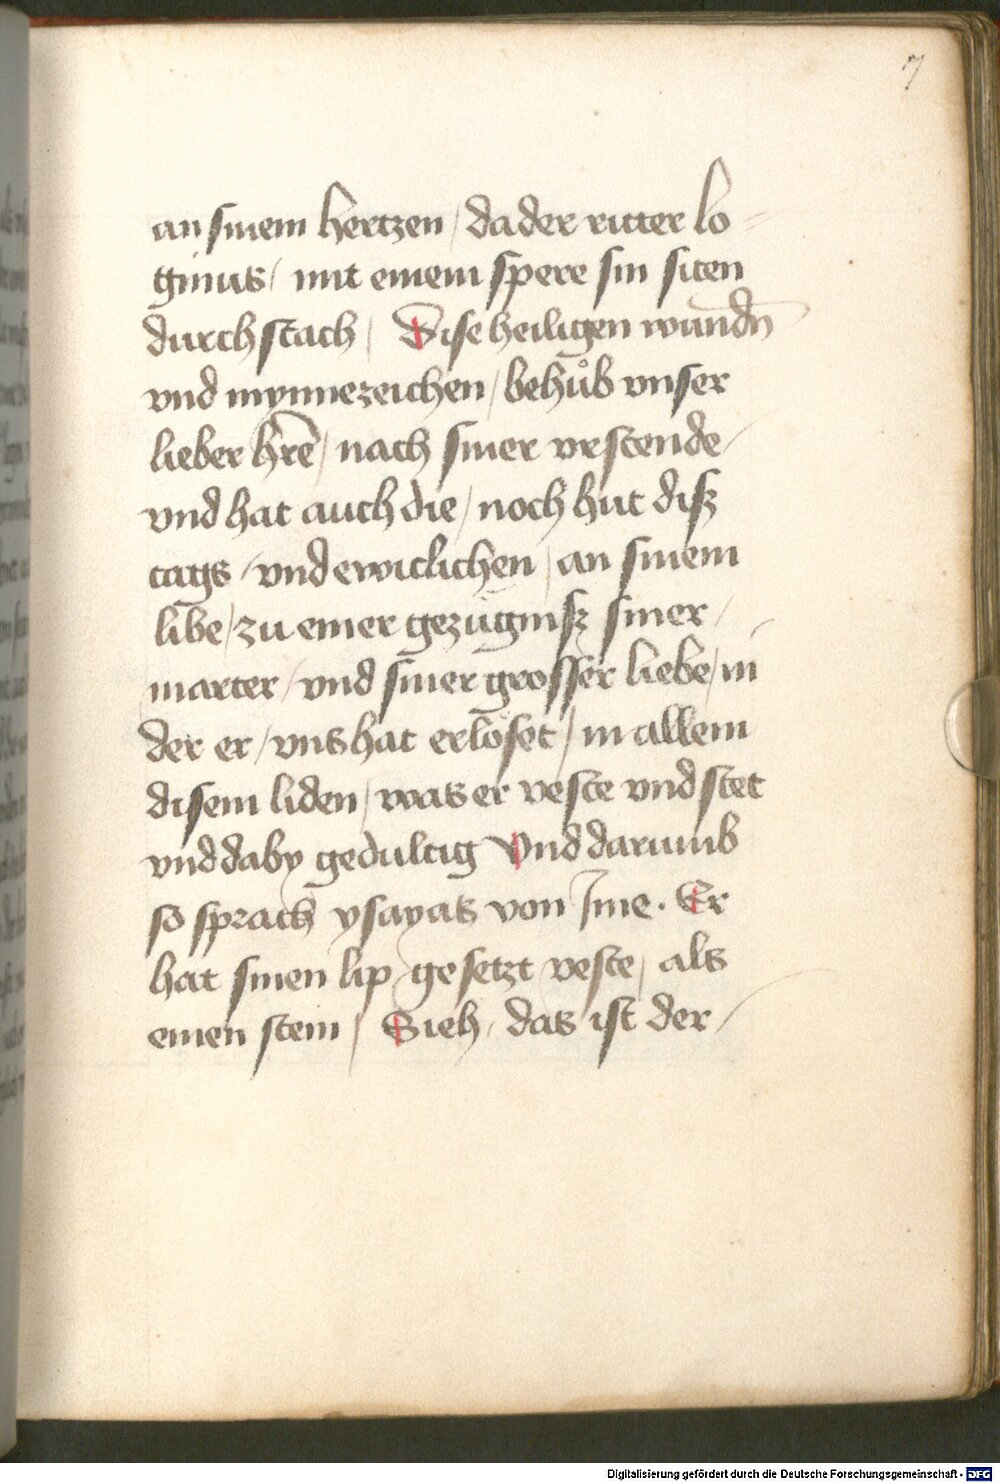 7
an sinem hertzen / da der ritter lo-
ginus / mit einem spere sin siten
durch stach / Dise heiligen wundn̄
vnd mynnezeichen / behůb vnser
lieber hr̄e / nach siner vrstende /
vnd hat auch die / noch hut disz
tags / vnd ewiclichen / an sinem
libe / zu einer gezügnisz siner /
marter / vnd siner grosser liebe / in
der er / vns hat erlöset / in allem
disem liden / was er veste vnd stet
vnd daby gedultig Vnd darumb
so sprach ysayas von Ime . Er
hat sinen lip / gesetzt veste / als
einen stein / Sieh / das ist der /
Digitalisierung gefördert durch die Deutsche Forschungsgemeinschaft - DFG